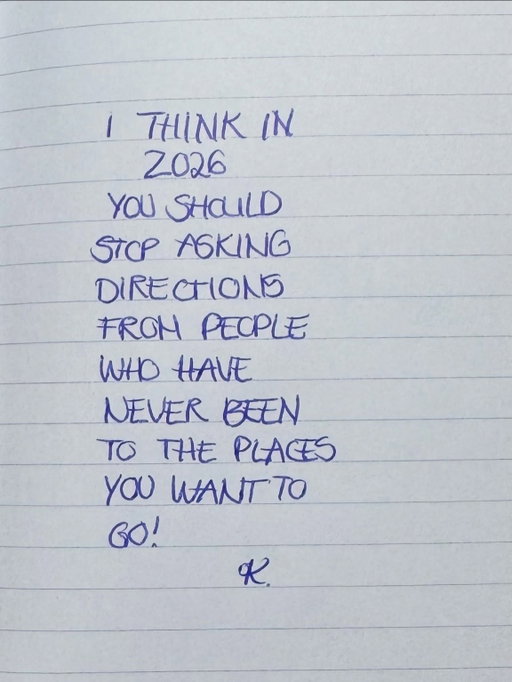 I THINK IN
2026
YOU SHOULD
STOP ASKING
DIRECTIONS
FROM PEOPLE
WHO HAVE
NEVER BEEN
TO THE PLACES
YOU WANT TO
GO!
K.